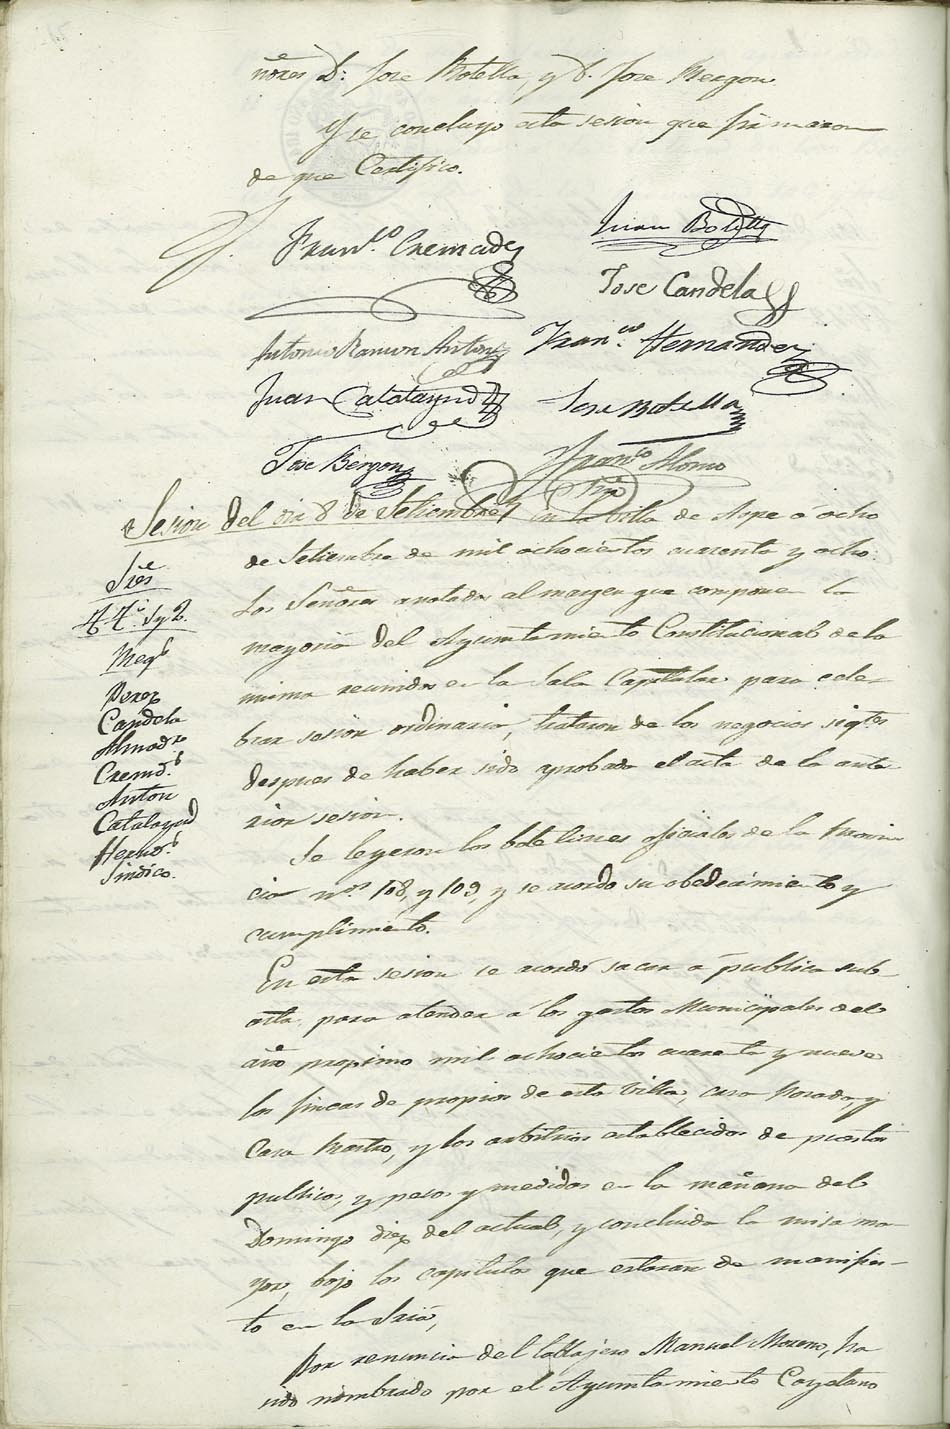 ñores D.: Jose Botella, y D. Jose Bergon.
Y se concluyo esta sesion que firmaron
de que Certifico.
Fran.co Cremades
Juan Botella
Jose Candela
Antonio Ramon Anton
Fran.co Hernandez
Juan Catalayud
Jose Botella
Jose Bergon
Fran.co Alonso
Srio
Sesion del dia 8 de Setiembre
En la Villa de Aspe á ocho
de Setiembre de mil ochocientos cuarenta y ocho:
Los Señores anotados al margen que compone la
mayoria del Ayuntamiento Constitucional de la
misma reunidos en la Sala Capitular para cele-
brar sesion ordinaria, trataron de los negocios sig.tes
despues de haber sido aprobada el acta de la ante
rior sesion.
Sres
A. A. 1 y 2.
Perez
Candela
Almodr
Cremd.s
Anton
Catalayud
Hernd.s
Sindico.
Se leyeron los boletines oficiales de la Provin
cia n.os 108, y 109, y se acordo su obedecimiento y
cumplimiento.
En esta sesion se acordó sacar á publica sub-
asta, para atender á los gastos Municipales del
año proximo mil ochocientos cuarenta y nueve
las fincas de propios de esta Villa, casa Posada, y
Casa Rastro, y los arbitrios establecidos de puestos
publicos, y pesos y medidas en la mañana del
Domingo diez del actual, y concluida la misa ma-
yor, bajo los capitulos que estaran de manifies-
to en la Sria,
Por renuncia del Tablajero Manuel Moreno, ha
sido nombrado por el Ayuntamiento Cayetano